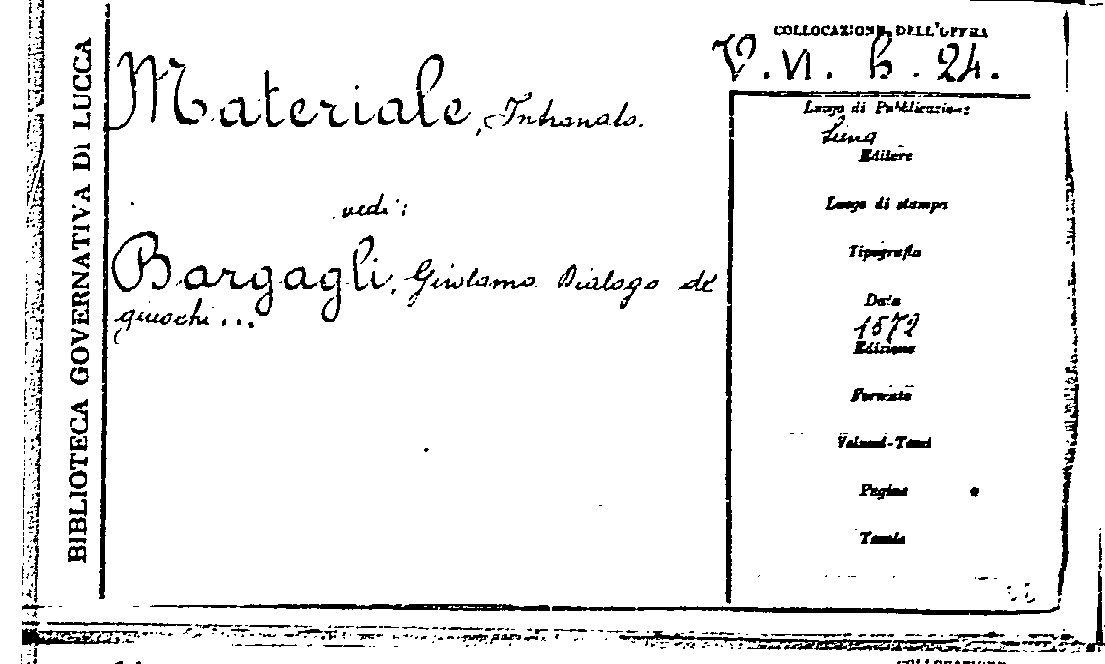 BIBLIOTECA GOVERNATIVA DI LUCCA
COLLOCAZIONE DELL'OPERA
V. VI. b. 24.
Materiale, Intronato.
vedi:
Bargagli, Girolamo Dialogo de'
giuochi...
Luogo di Pubblicazione
Editore
Luogo di stampa
Tipografia
Data
1572
Edizione
Formato
Volumi-Tomi
Pagine
Tavole
COLLOCAZIONE